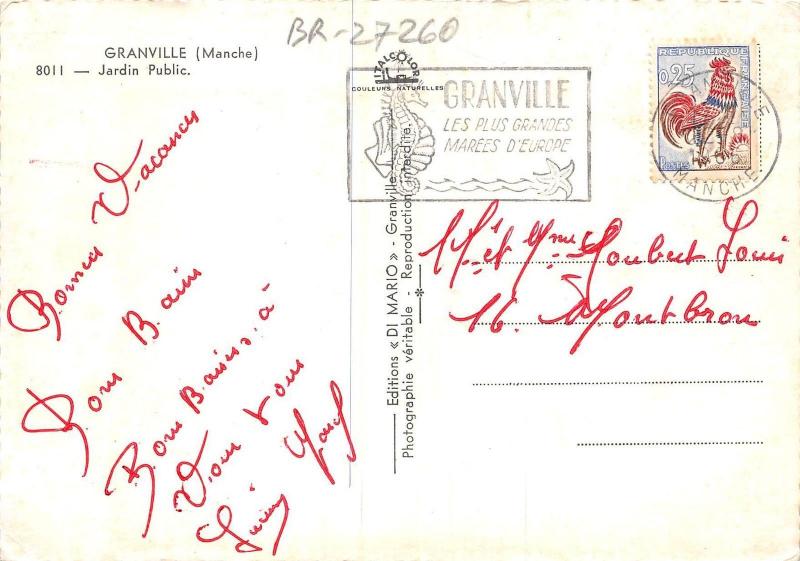 BR-27260
GRANVILLE (Manche)
8011 — Jardin Public.
ITALCOLOR
COULEURS NATURELLES
GRANVILLE
LES PLUS GRANDES
MARÉES D'EUROPE
REPUBLIQUE
FRANÇAISE
0,25
Postes
MANCHE
Bonnes Vacances
Bons Bains
Bons Baisers à
Vous tous
Editions « DI MARIO » - Granville
Photographie véritable - Reproduction interdite.
Mr et Mme Joubert Louis
16. à Montbron